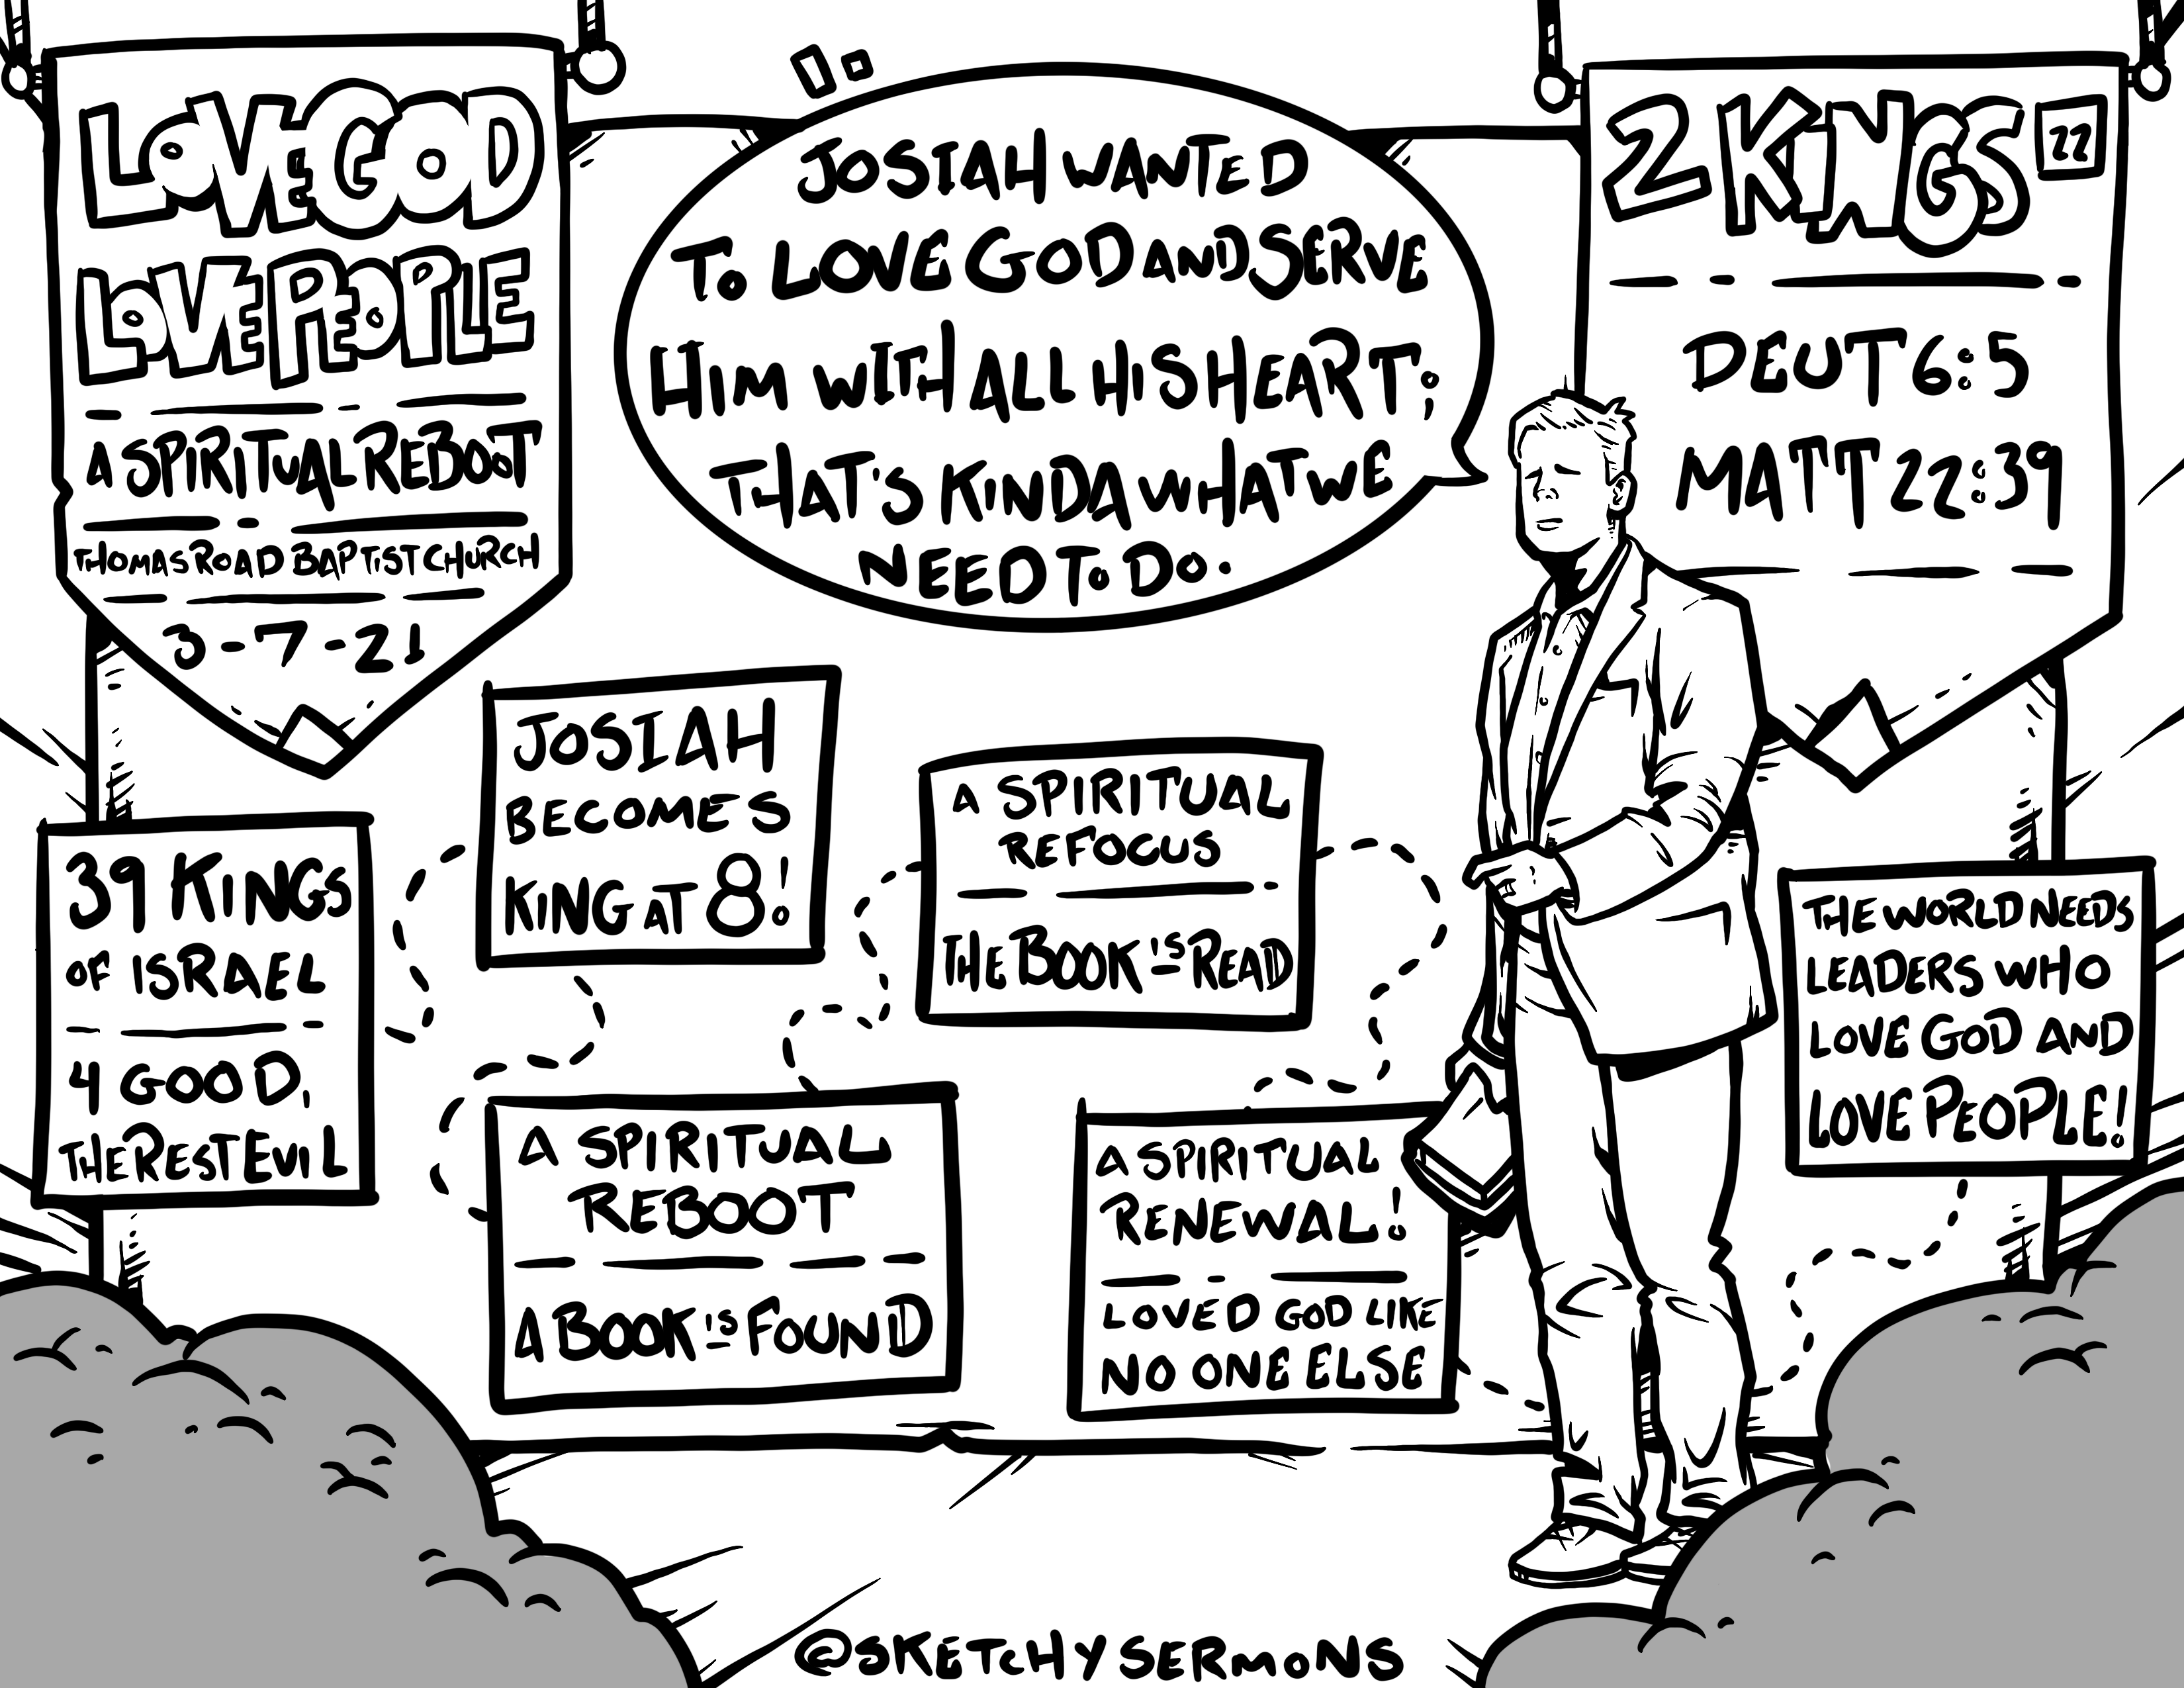 LOVE GOD
LOVE PEOPLE
A SPIRITUAL REBOOT
THOMAS ROAD BAPTIST CHURCH
3-7-21
JOSIAH WANTED
TO LOVE GOD AND SERVE
HIM WITH ALL HIS HEART;
THAT'S KINDA WHAT WE
NEED TO DO.
2 KINGS 22
DEUT 6:5
MATT 22:39
39 KINGS
OF ISRAEL
4 GOOD,
THE REST EVIL
JOSIAH
BECOMES
KING AT 8!
A SPIRITUAL
REBOOT
A BOOK IS FOUND
A SPIRITUAL
REFOCUS
THE BOOK IS READ
A SPIRITUAL
RENEWAL!
LOVED GOD LIKE
NO ONE ELSE
THE WORLD NEEDS
LEADERS WHO
LOVE GOD AND
LOVE PEOPLE!
@SKETCHYSERMONS